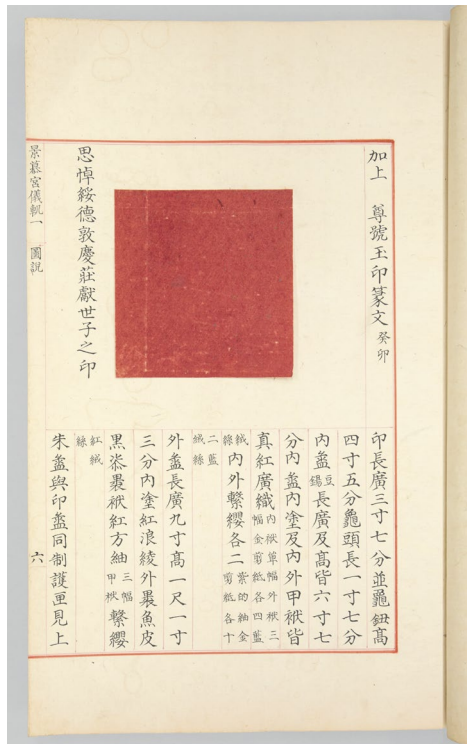 加上 尊號玉印篆文 癸卯
思悼綏德敦慶莊獻世子之印
印長廣三寸七分並龜鈕高
四寸五分龜頭長一寸七分
內盝豆錫長廣及高皆六寸七
分內盝內塗及內外甲袱皆
真紅廣織內袱單幅外袱三幅金剪紙各四藍
絨絲內外繫纓各二紫的紬金剪紙各十
二藍絨絲
外盝長廣九寸高一尺一寸
三分內塗紅浪綾外裹魚皮
黑漆裹袱紅方紬三幅甲袱繫纓
紅絨絲
朱盝與印盝同制護匣見上
景慕宮儀軌一 圖說 六